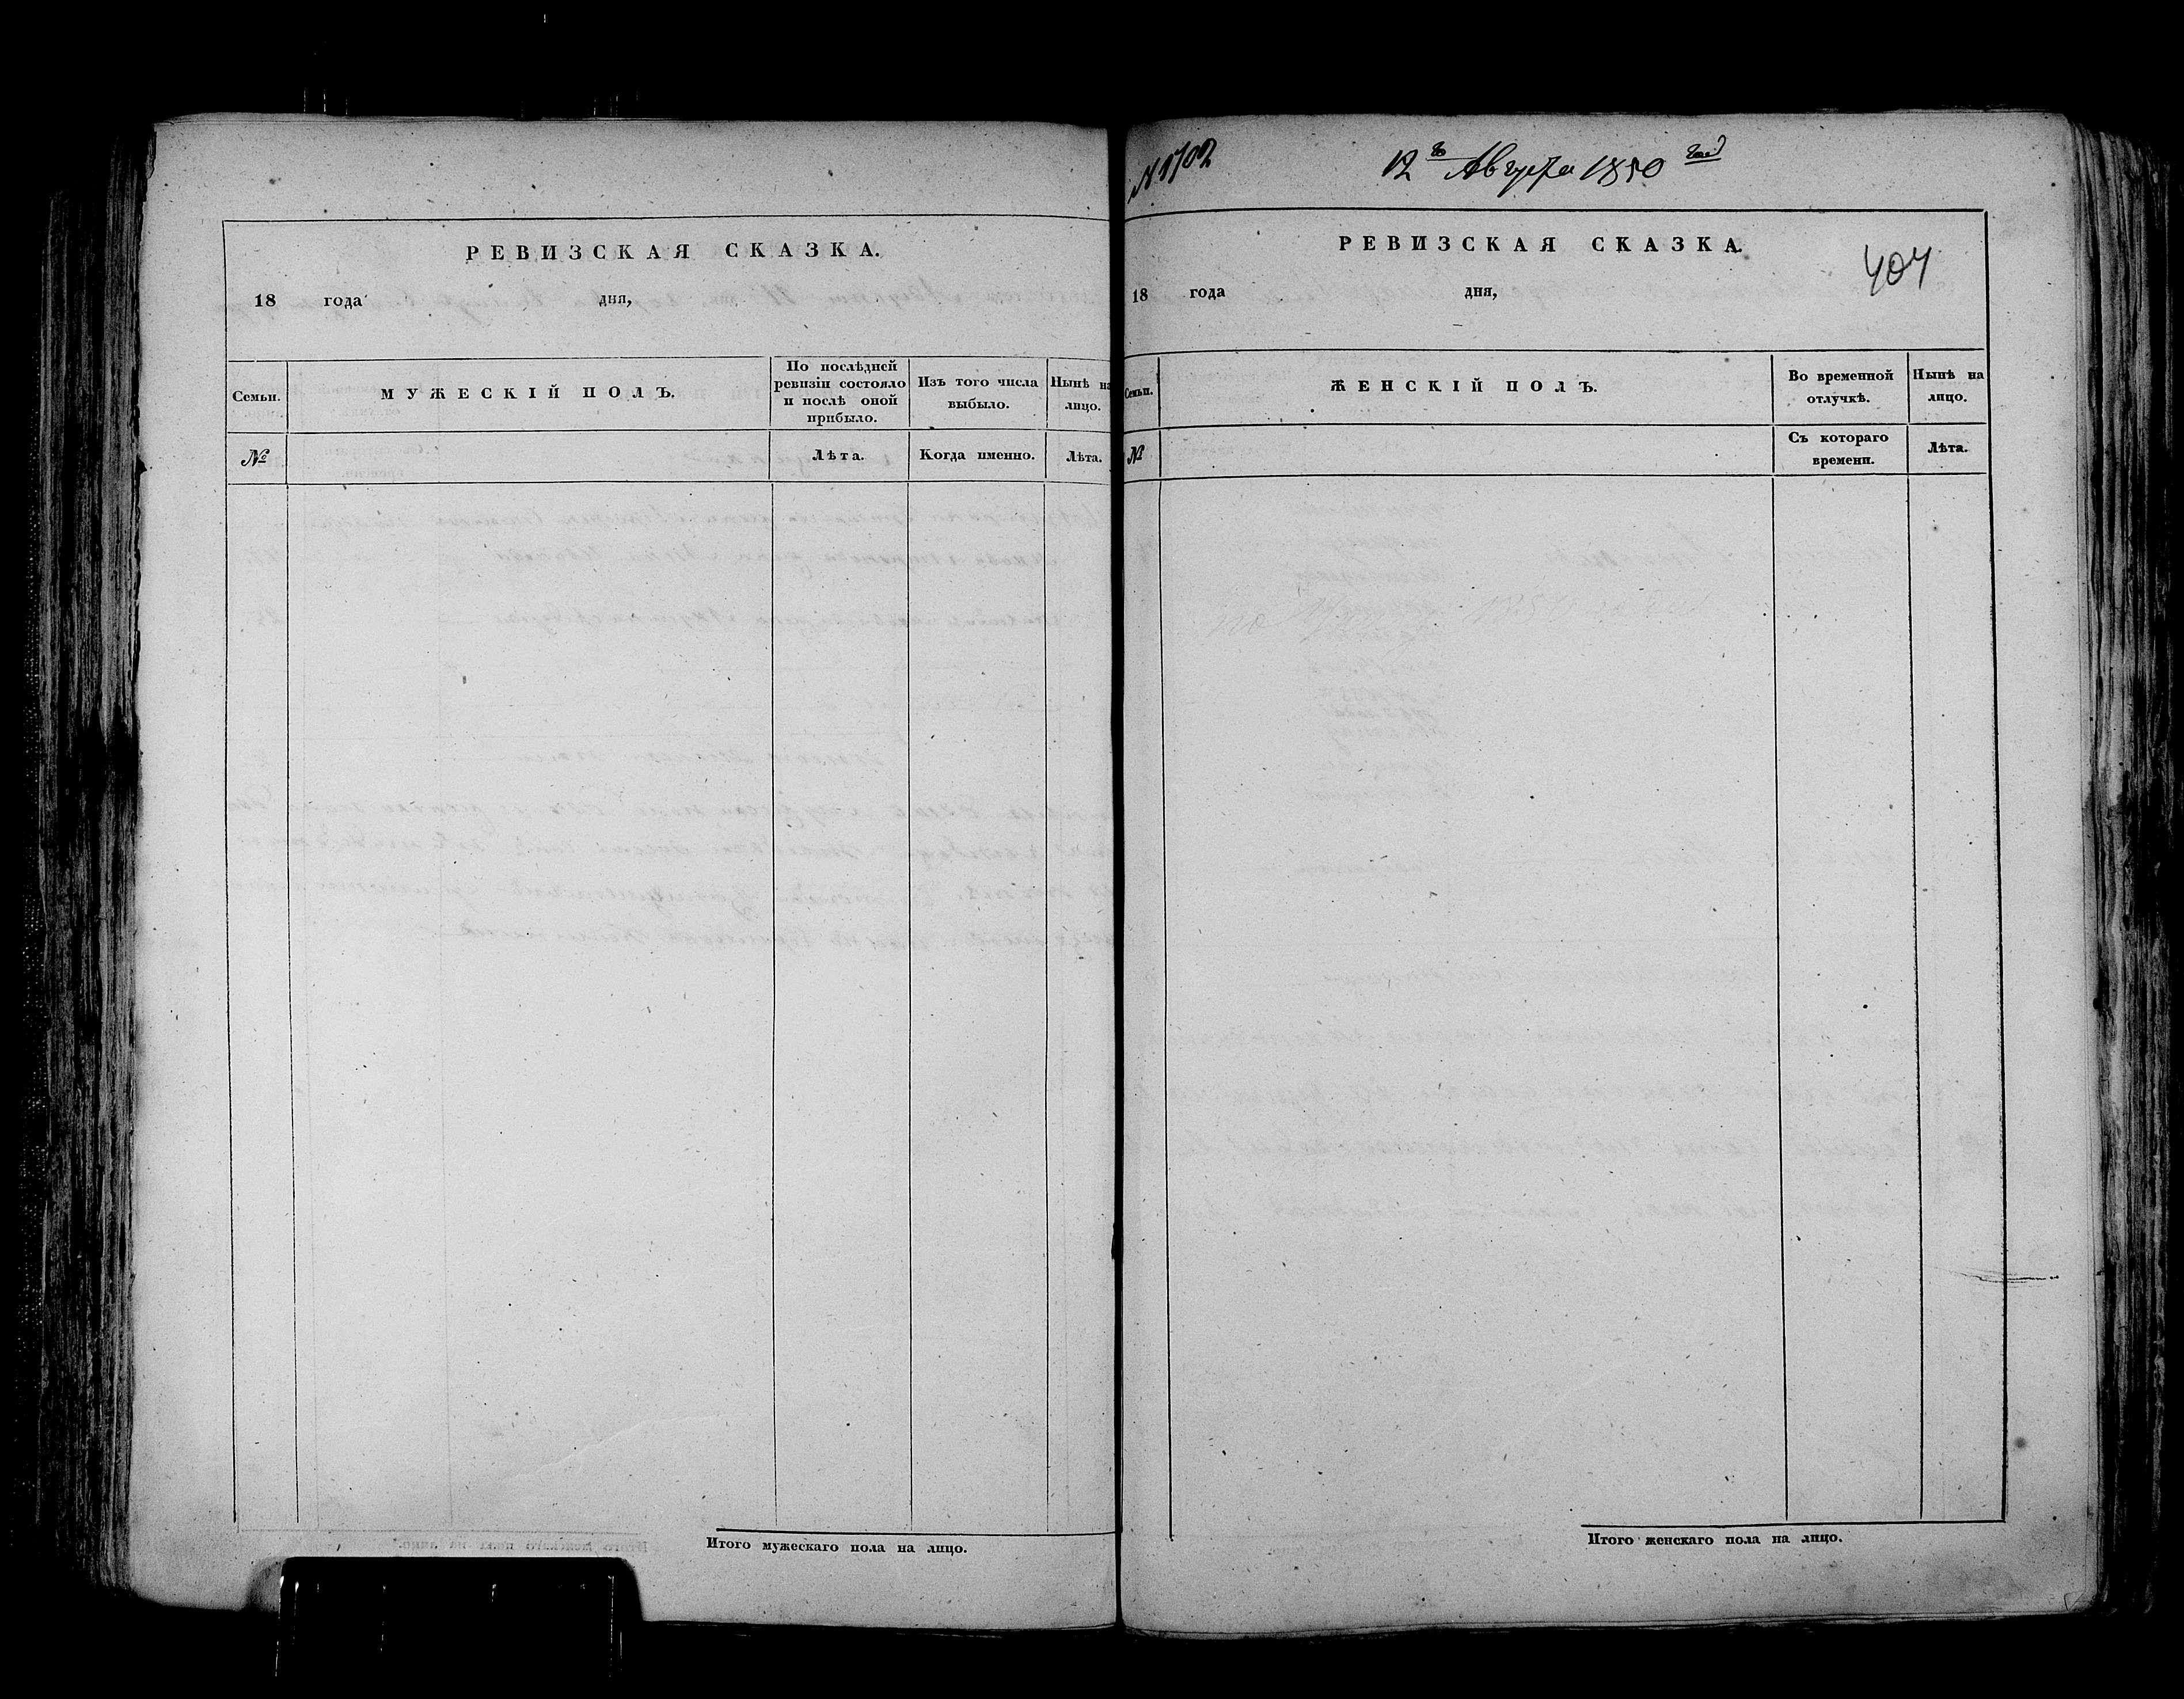 РЕВИЗСКАЯ СКАЗКА.
18 года дня,
Семьи. МУЖЕСКІЙ ПОЛЪ. По послѣдней ревизіи состояло и послѣ оной прибыло. Изъ того числа выбыло. Нынѣ на лицо.
№ Лѣта. Когда именно. Лѣта.
Итого мужескаго пола на лицо.
№ 1702
12го Августа 1850 года
РЕВИЗСКАЯ СКАЗКА.
404
18 года дня,
Семьи. ЖЕНСКІЙ ПОЛЪ. Во временной отлучкѣ. Нынѣ на лицо.
№ Съ котораго времени. Лѣта.
Итого женскаго пола на лицо.